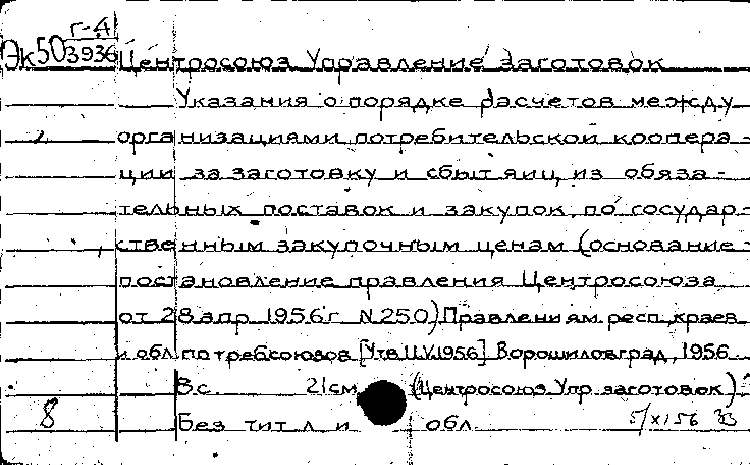 г-4
Эк50 3936 Центросоюз Управление заготовок
Указания о порядке расчетов между
организациями потребительской коопера-
ции за заготовку и сбыт яиц, из обяза-
тельных поставок и закупок по государ-
ственным закупочным ценам (основание-
постановление правления Центросоюза
от 28 апр 1956г N250) Правлениям респ. краев
и обл потребсоюзов [Утв 11.V.1956] Ворошиловград, 1956
8с. 21см (Центросоюз Упр заготовок)
8 Без тит л и обл 5/XI 56